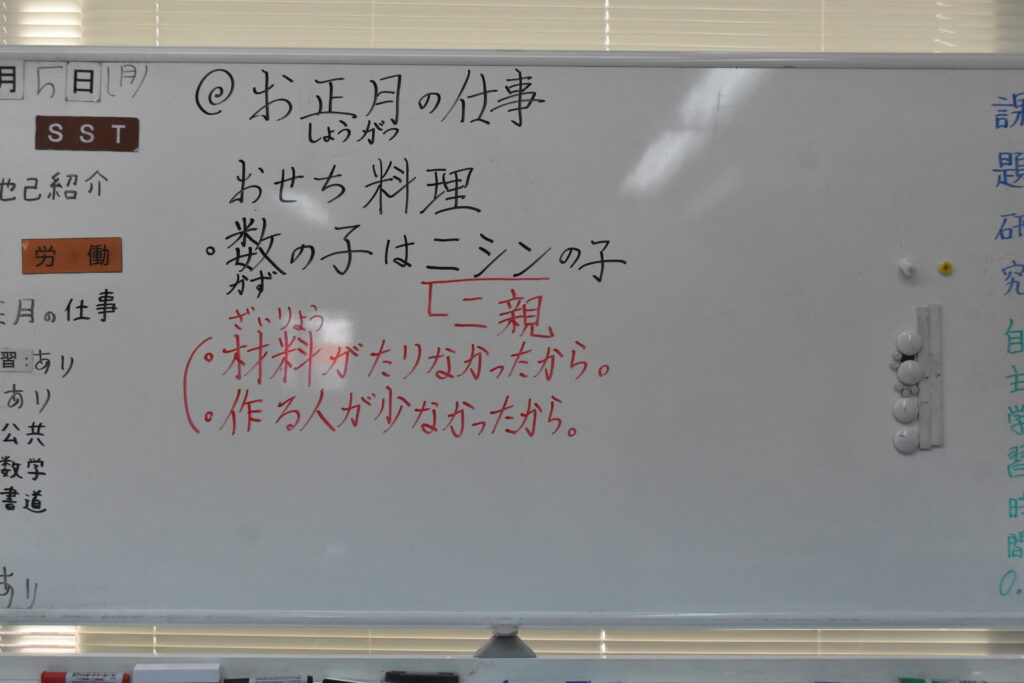 月5日(月)
SST
他己紹介
労働
正月の仕事
習:あり
あり
公共
数学
書道
あり
@お正月の仕事
しょうがつ
おせち料理
・数の子はニシンの子
かず
二親
ざいりょう
・材料がたりなかったから。
・作る人が少なかったから。
課題研究
自主学習時間
0.